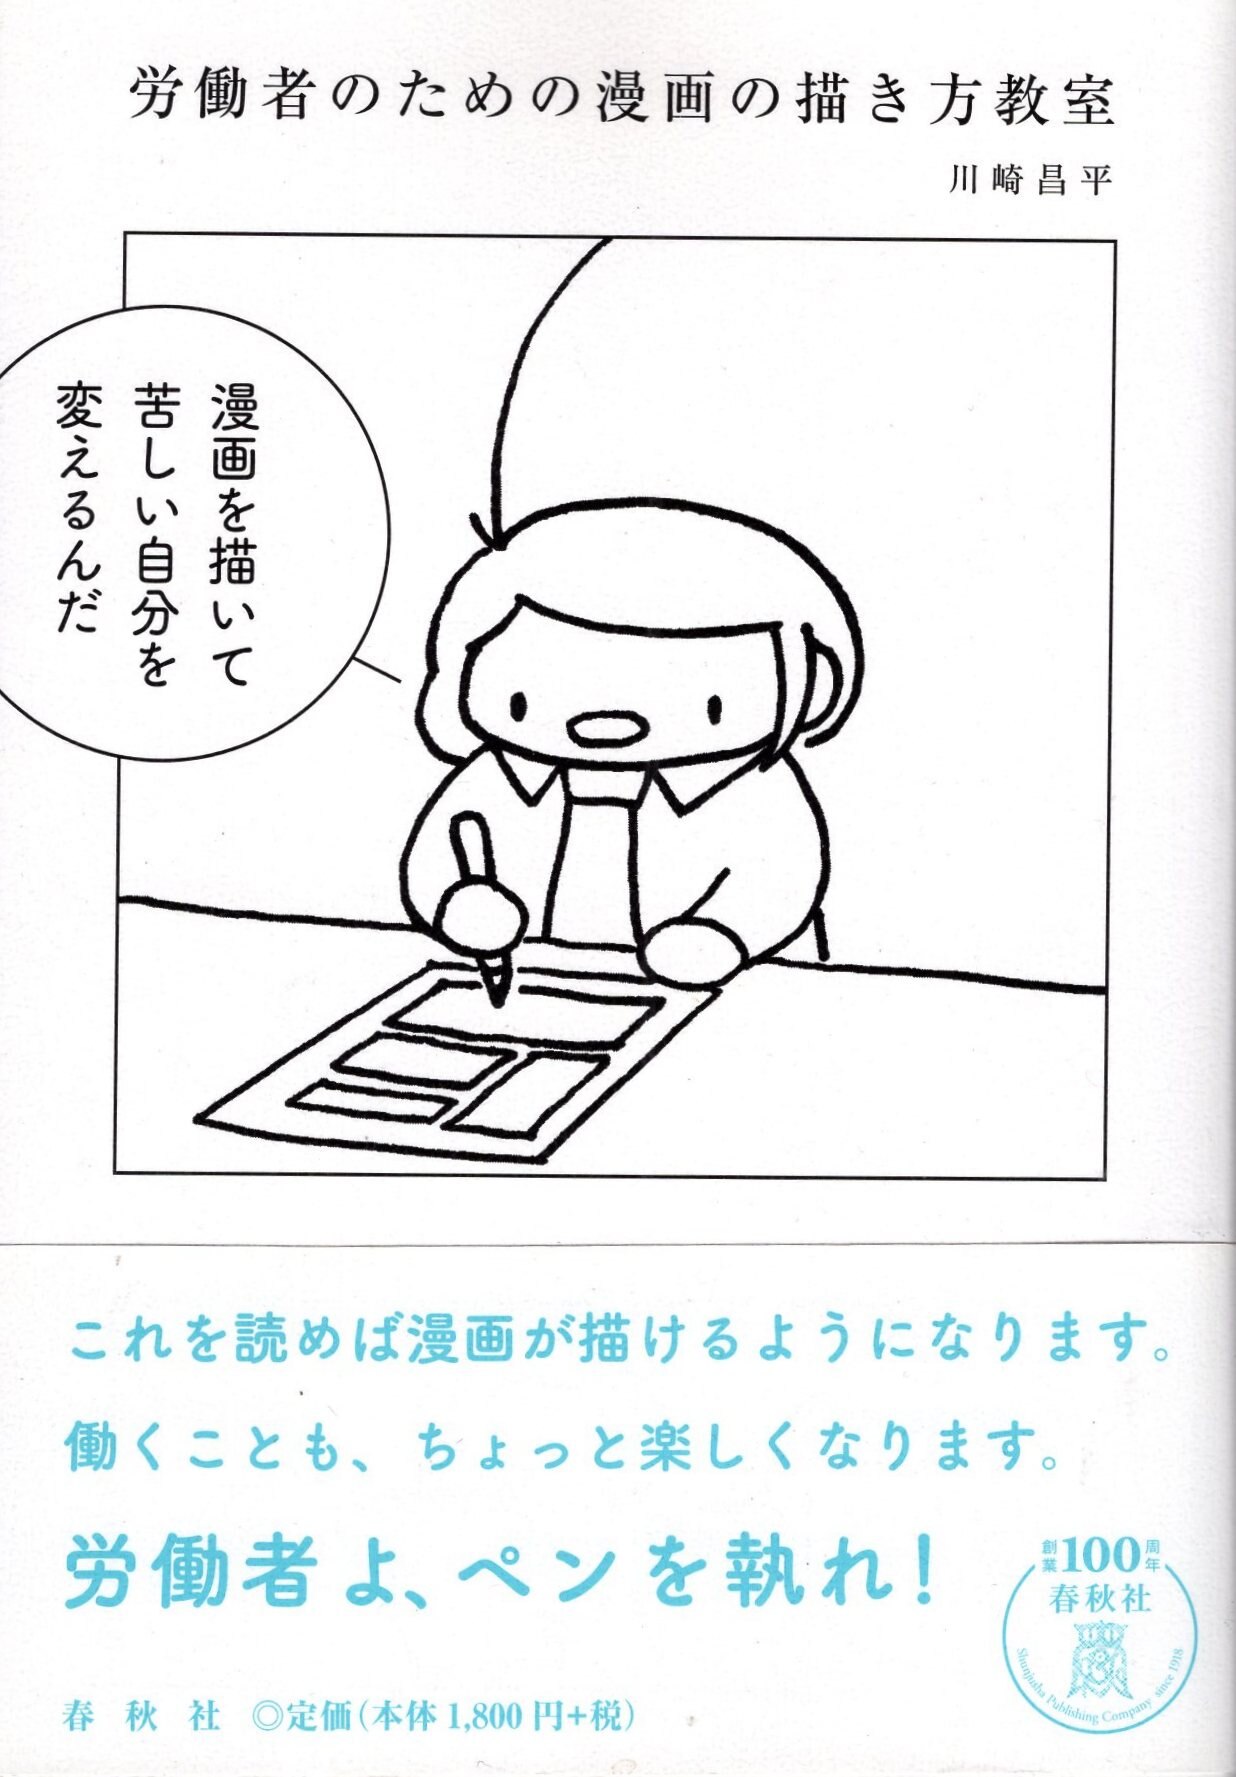 労働者のための漫画の描き方教室
川崎昌平
漫画を描いて
苦しい自分を
変えるんだ
これを読めば漫画が描けるようになります。
働くことも、ちょっと楽しくなります。
労働者よ、ペンを執れ!
創業100周年
春秋社
Shunjusha Publishing Company since 1918
春秋社 ◎定価(本体1,800円+税)